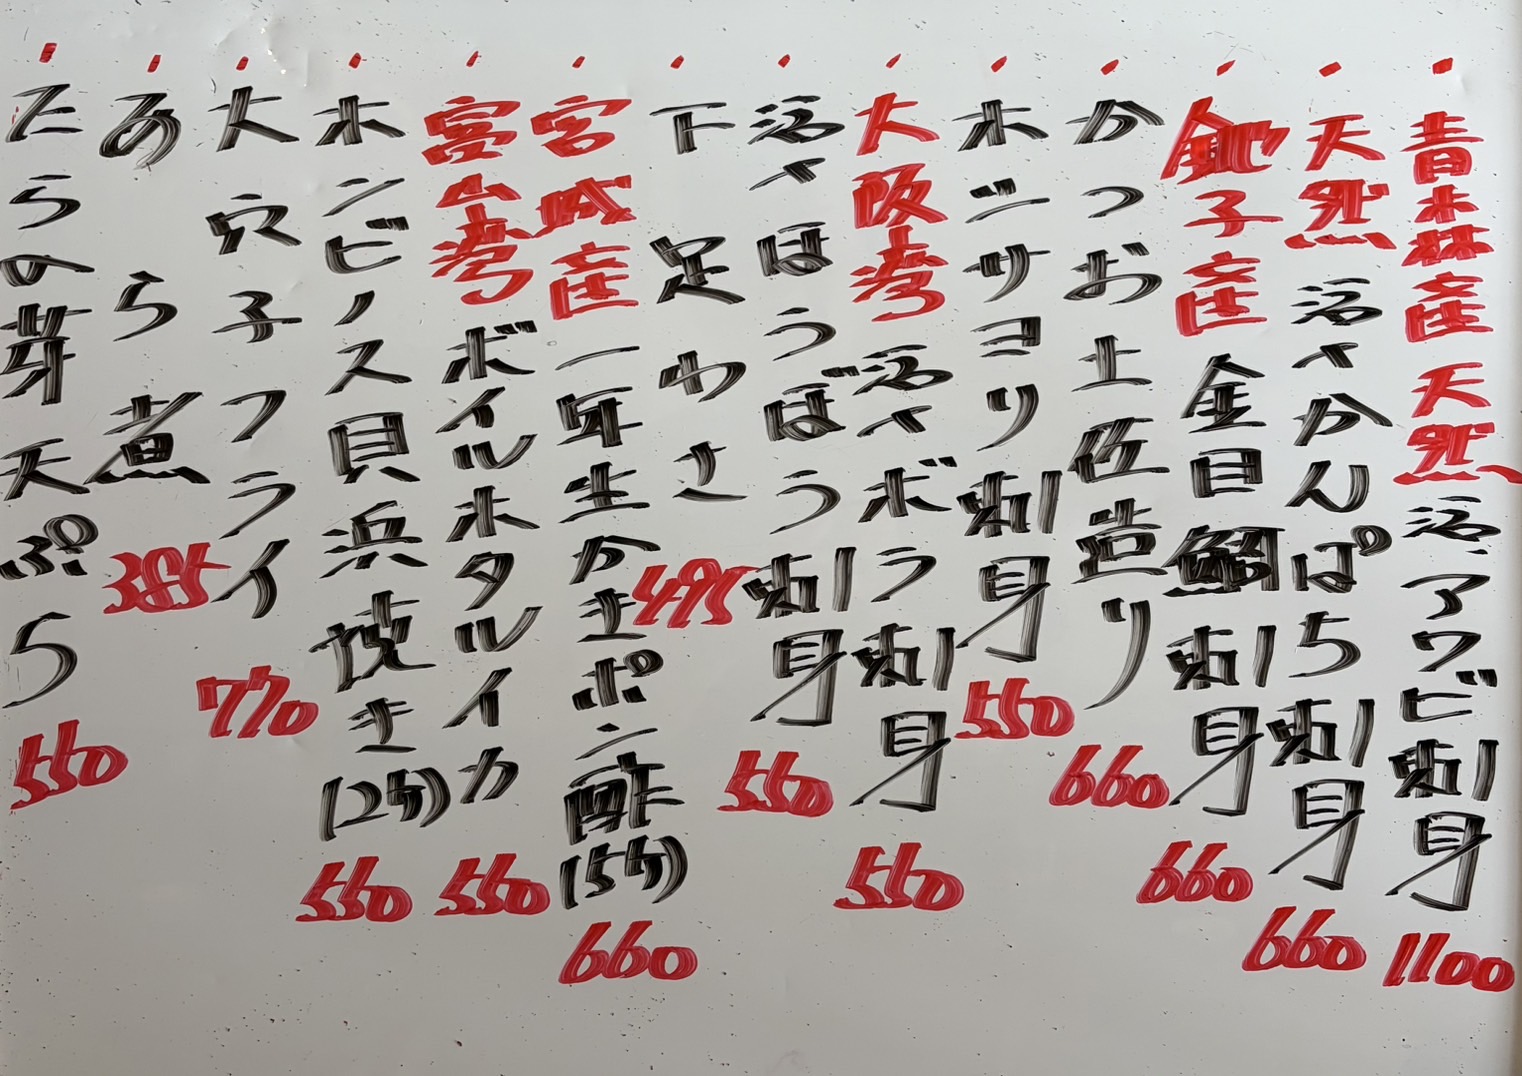 青森産天然活〆アワビ刺身 1100
天然活〆かんぱち刺身 660
銚子産金目鯛刺身 660
かつお土佐造り 660
ホンサヨリ刺身 550
大阪湾活〆ボラ刺身 550
活〆ほうぼう刺身 550
下足わさ 495
宮城産一年生かきポン酢(5ケ) 660
富山湾ボイルホタルイカ 550
ホンビノス貝浜焼き(2ケ) 550
大穴子フライ 770
あら煮 385
たらの芽天ぷら 550